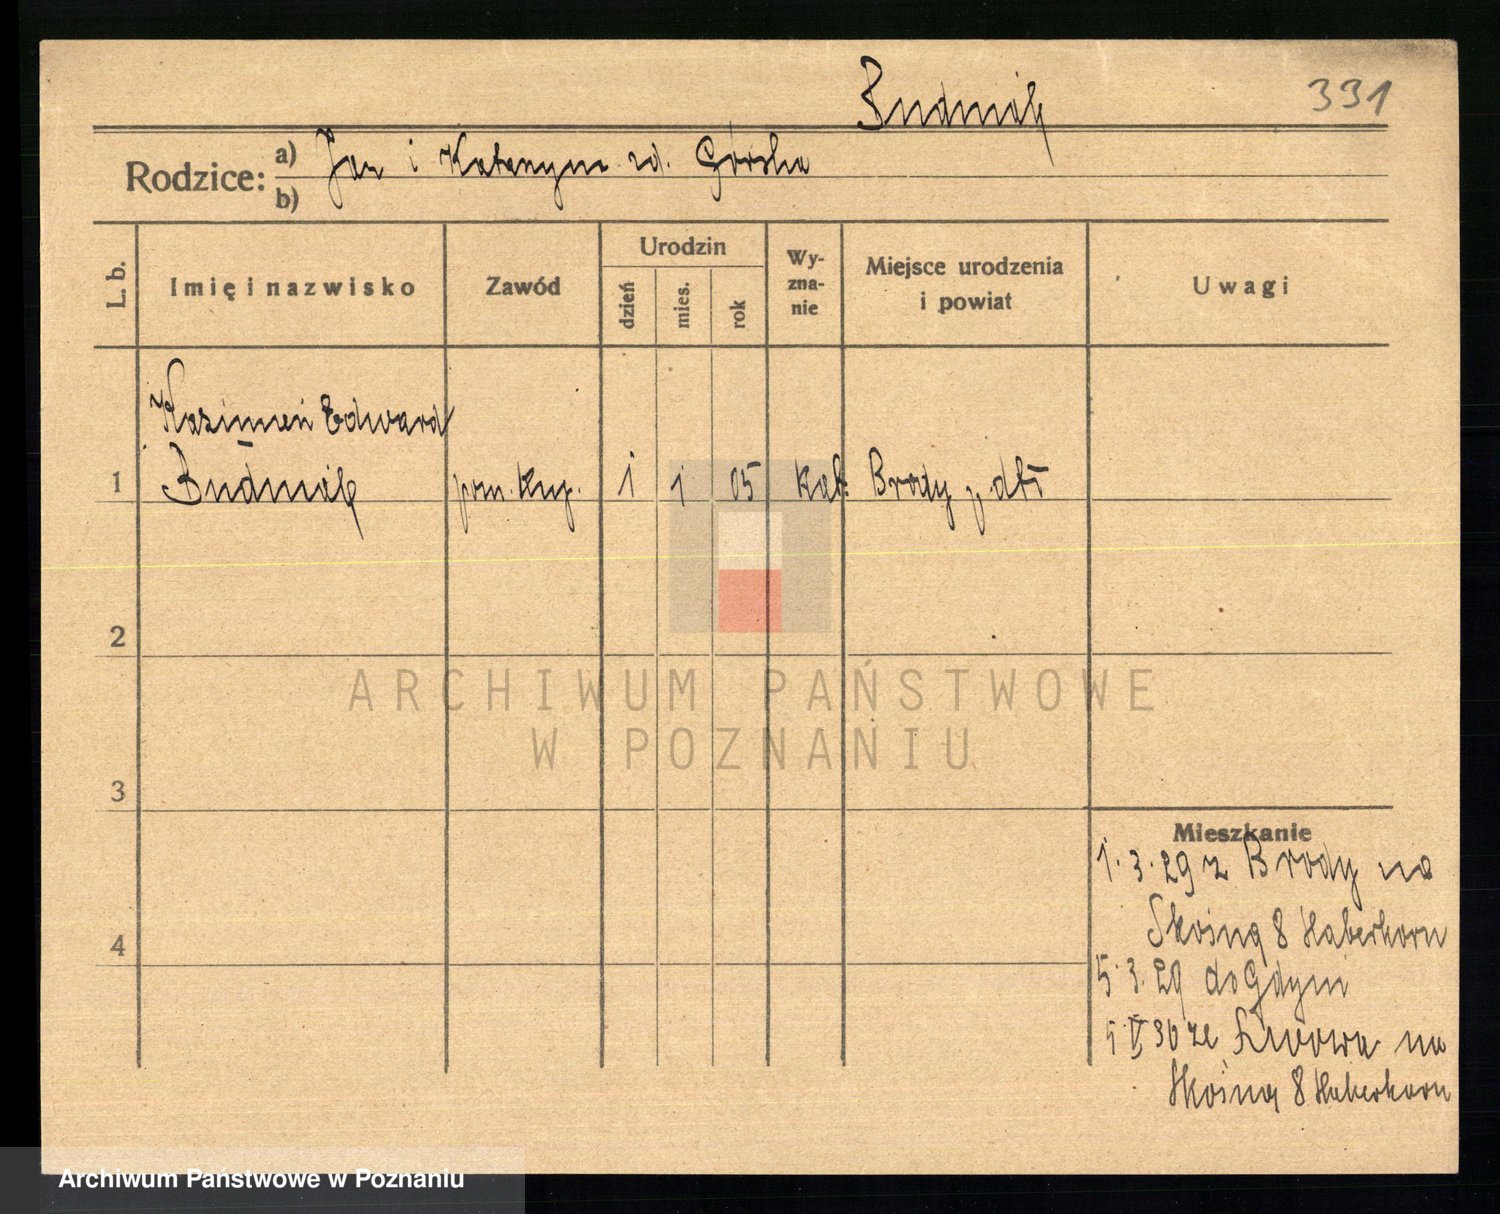 Budnik
331
Rodzice:
a) Jan i Katarzyna zd. Górska
b)
L. b.
Imię i nazwisko
Zawód
Urodzin
dzień
mies.
rok
Wy-
zna-
nie
Miejsce urodzenia
i powiat
Uwagi
Kazimierz Edward
1 Budnik pom. kup. 1 1 05 kat. Brody p. dtt
2
3
4
Mieszkanie
1.3.29 z Brody na
Skośną 8 Haberkorn
5.3.29 do Gdyni
5 V 30 ze Lwowa na
Skośną 8 Haberkorn
ARCHIWUM PAŃSTWOWE
W POZNANIU
Archiwum Państwowe w Poznaniu